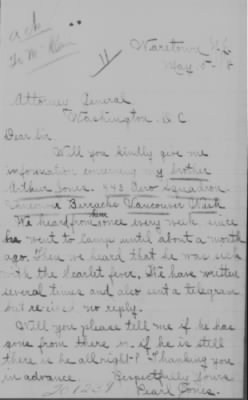 ack
Waretown N.J.
May 5-18
Attorney General
Washington D C
Dear Sir
Will you kindly give me
information concerning my brother
Arthur Jones. 443 Aero Squadron.
Vancouver Barracks Vancouver Wash
We heard from him once every week since
he went to camp until about a month
ago. Then we heard that he was sick
with the Scarlet fever. We have written
several times and also sent a telegram
but received no reply.
Will you please tell me if he has
gone from there or if he is still
there is he all right? Thanking you
in advance. Respectfully Yours
Pearl Jones.